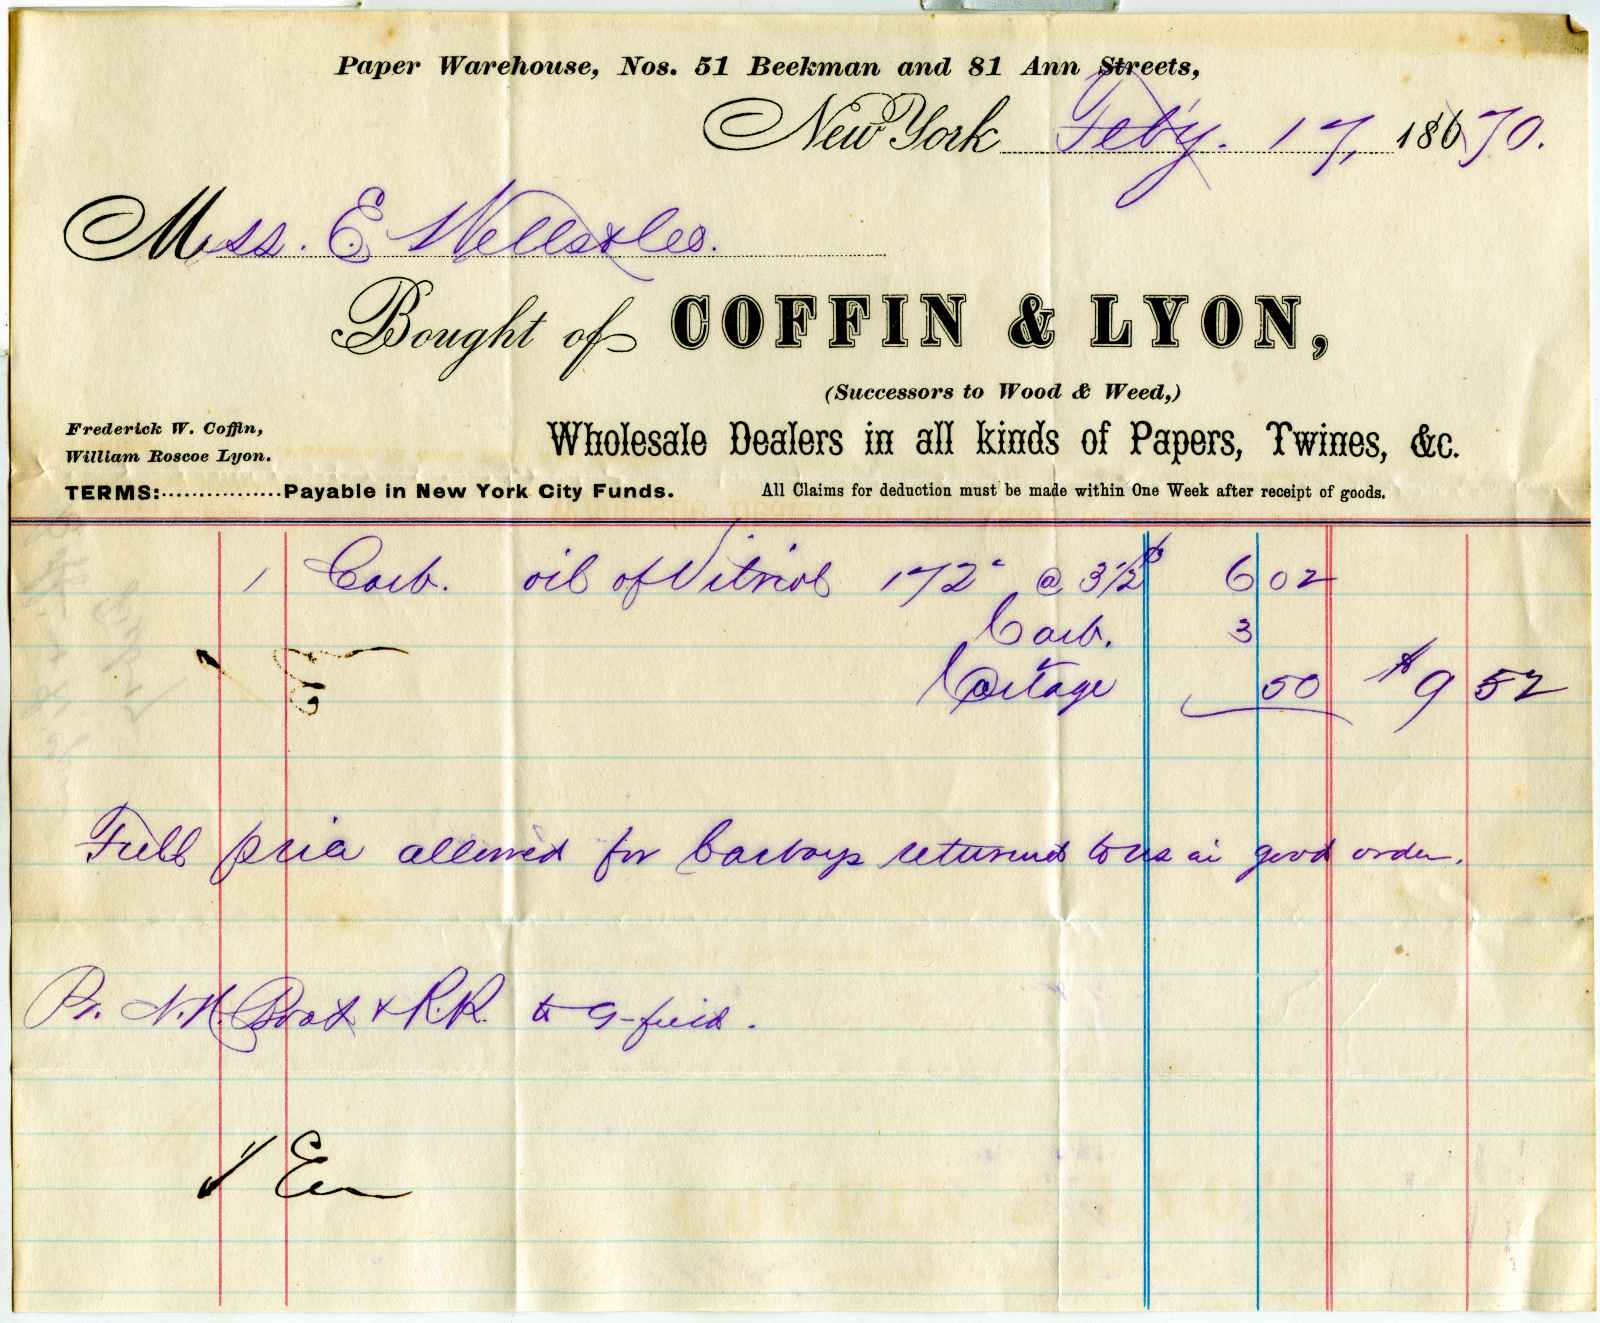 Paper Warehouse, Nos. 51 Beekman and 81 Ann Streets,
New York Feby. 17, 18670.
Mess. E Wells & Co.
Bought of COFFIN & LYON,
(Successors to Wood & Weed,)
Frederick W. Coffin,
William Roscoe Lyon.
Wholesale Dealers in all kinds of Papers, Twines, &c.
TERMS:................Payable in New York City Funds.
All Claims for deduction must be made within One Week after receipt of goods.
1 Carb. oil of Vitriol 172 @ 3 1/2 6 02
Carb. 3
Cartage 50 $9 52
Full price allowed for Carboys returned to us in good order.
Pr. N.H. Boat & R.R. to G-field.